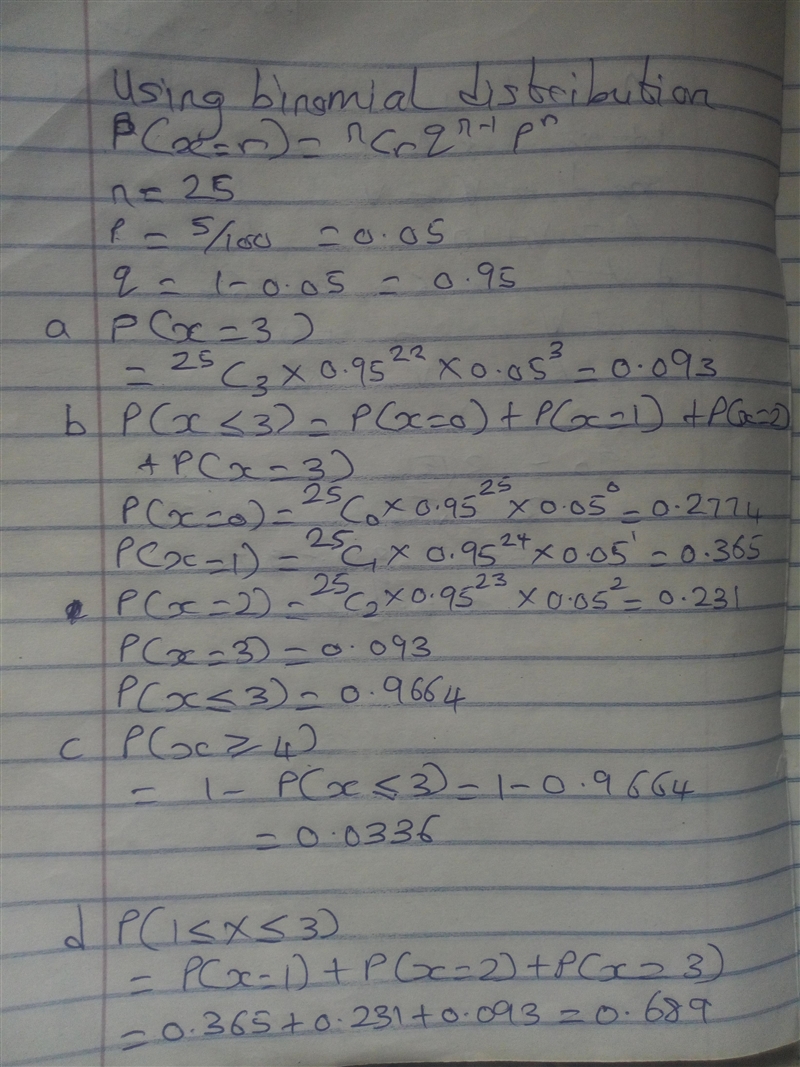 Using binomial distribution
P(x=r) = ⁿCr q^(n-1) p^n
n = 25
P = 5/100 = 0.05
q = 1 - 0.05 = 0.95
a P(x=3)
= ²⁵C₃ × 0.95²² × 0.05³ = 0.093
b P(x ≤ 3) = P(x=0) + P(x=1) + P(x=2)
+ P(x=3)
P(x=0) = ²⁵C₀ × 0.95²⁵ × 0.05⁰ = 0.2774
P(x=1) = ²⁵C₁ × 0.95²⁴ × 0.05¹ = 0.365
P(x=2) = ²⁵C₂ × 0.95²³ × 0.05² = 0.231
P(x=3) = 0.093
P(x ≤ 3) = 0.9664
c P(x ≥ 4)
= 1 - P(x ≤ 3) = 1 - 0.9664
= 0.0336
d P(1 ≤ X ≤ 3)
= P(x=1) + P(x=2) + P(x=3)
= 0.365 + 0.231 + 0.093 = 0.689